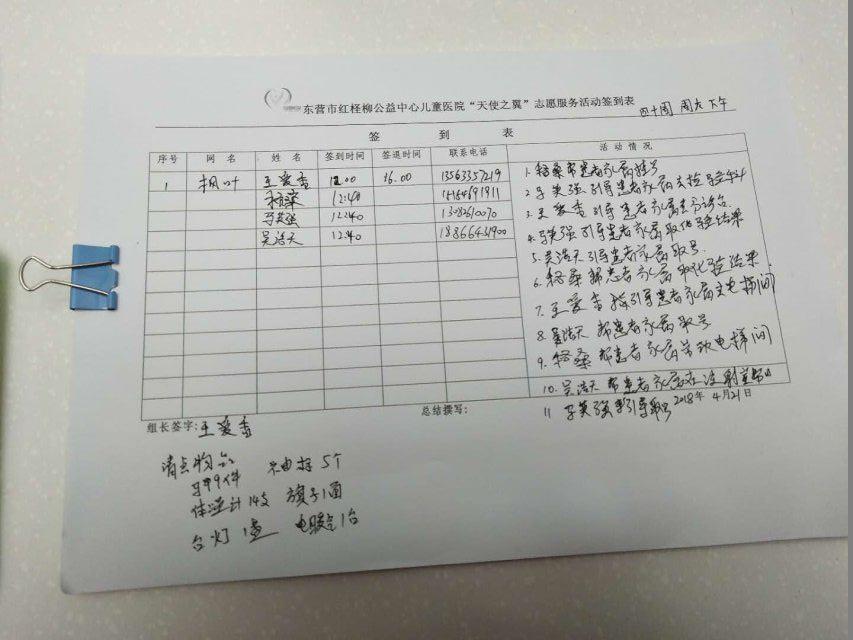 东营市红柽柳公益中心儿童医院“天使之翼”志愿服务活动签到表 四十周 周六下午
签到表
序号 网名 姓名 签到时间 签退时间 联系电话 活动情况
1 枫叶 王爱香 12.00 16.00 13563357219
12:40
于英强 12:40
吴浩天 12:40
1. 帮患者家属挂号
2. 于英强引导患者家属去检验
3. 王爱香引导患者家属去分诊台
4. 于英强引导患者家属取化验结果
5. 吴浩天引导患者家属取号
6. 帮患者家属取化验结果
7. 王爱香 引导患者家属去电梯间
8. 吴浩天 帮患者家属取号
9. 帮患者家属 电梯间
10. 吴浩天 帮患者家属在注射室
11 于英强 引导取号
2018年4月21日
组长签字:王爱香
总结撰写:
清点物品
马甲9件 5个
体温计14支 旗子1面
台灯1盏 电暖气1台